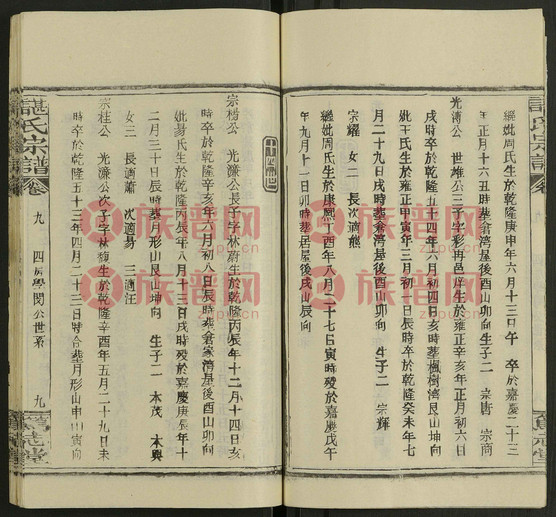 繼妣周氏生於乾隆庚申年六月十三日午 卒於嘉慶二十三
年正月十六丑時葬倉灣屋後酉山卯向 生子二 宗唐 宗商
光濤公 世雄公三子字彩再邑庠生於雍正辛亥年正月初六日
戌時卒於乾隆五十四年六月初四日亥時葬楓樹灣艮山坤向
妣王氏生於雍正甲寅年三月初一日辰時卒於乾隆癸未年七
月二十九日戌時葬倉灣屋後酉山卯向 生子二 宗輝
宗耀 女二 長次適熊
繼妣周氏生於康熙丁酉年八月二十七日寅時歿於嘉慶戊午
年九月十一日卯時葬居屋後戌山辰向
十四世
宗楷公 光濂公長子字林蔚生於乾隆丙辰年十二月十四日亥
時卒於乾隆辛亥年六月初八日辰時葬倉家灣屋後酉山卯向
妣易氏生於乾隆丙辰年八月十三日戌時歿於嘉慶庚辰年十
二月三十日辰時葬月形山艮山坤向 生子二 本茂 本興
女三 長適蕭 次適易 三適汪
宗桂公 光濂公次子字林馥生於乾隆辛酉年五月二十九日未
時卒於乾隆五十三年四月二十三日時合葬月形山申山寅向
諶氏宗譜 卷 九 四房學閔公世系 九
族谱网